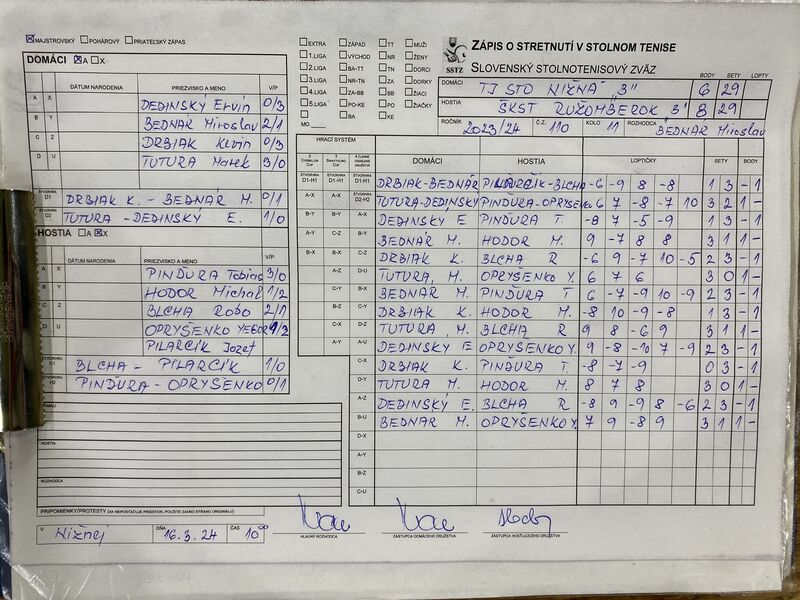 MAJSTROVSKÝ POHÁROVÝ PRIATEĽSKÝ ZÁPAS
DOMÁCI A X
DÁTUM NARODENIA PRIEZVISKO A MENO V/P
A X DEDINSKÝ Ervín 0/3
B Y BEDNÁR Miroslav 2/1
C Z DRBIAK Kevin 0/3
D U TUTURA Marek 3/0
ŠTVORHRA D1 DRBIAK K. - BEDNÁR M. 0/1
ŠTVORHRA D2 TUTURA - DEDINSKÝ E. 1/0
HOSTIA A X
DÁTUM NARODENIA PRIEZVISKO A MENO V/P
A X PINĎURA Tobias 3/0
HODOR Michal 1/2
C Z BLCHA Robo 2/1
D U OPRYŠENKO YEBOR 1/2
PILARČÍK Jozef
D1 BLCHA - PILARČÍK 1/0
H2 PINĎURA - OPRYŠENKO 0/1
DOMÁCI
HOSTIA
ROZHODCA
PRIPOMIENKY/PROTESTY (AK NEPOSTAČUJE PRIESTOR, POUŽITE ZADNÚ STRANU ORIGINÁLU)
V Nižnej DŇA 16.3.24 ČAS 10⁰⁰
HLAVNÝ ROZHODCA
ZÁSTUPCA DOMÁCEHO DRUŽSTVA
ZÁSTUPCA HOSŤUJÚCEHO DRUŽSTVA
EXTRA ZÁPAD TT MUŽI
1.LIGA VÝCHOD NR ŽENY
2.LIGA BA-TT TN DORCI
3.LIGA NR-TN ZA DORKY
4.LIGA ZA-BB BB ŽIACI
5.LIGA PO-KE PO ŽIAČKY
BA KE
MO
SSTZ
ZÁPIS O STRETNUTÍ V STOLNOM TENISE
SLOVENSKÝ STOLNOTENISOVÝ ZVÄZ
BODY SETY LOPTY
DOMÁCI TJ STO NIŽNÁ "B" 6 29
HOSTIA ŠKST RUŽOMBEROK "B" 8 29
ROČNÍK 2023/24 Č.Z. 110 KOLO 11 ROZHODCA BEDNÁR Miroslav
HRACÍ SYSTÉM
DOMÁCI HOSTIA LOPTIČKY SETY BODY
D1-H1 D1-H1 D1-H1 DRBIAK-BEDNÁR PILARČÍK-BLCHA -6 -9 8 -8 1 3 - 1
A-X A-X D2-H2 TUTURA-DEDINSKÝ PINĎURA-OPRYŠENKO 6 7 -8 -7 10 3 2 1 -
B-Y B-Y A-X DEDINSKÝ E PINĎURA T. -8 7 -5 -9 1 3 - 1
A-Y C-Z B-Y BEDNÁR M. HODOR M. 9 -7 8 8 3 1 1 -
B-X B-X C-Z DRBIAK K. BLCHA R -6 9 -7 10 -5 2 3 - 1
A-Z D-U TUTURA M. OPRYŠENKO Y. 6 7 6 3 0 1 -
C-Y B-X BEDNÁR M. PINĎURA T 6 -7 -9 10 -9 2 3 - 1
B-Z C-Y DRBIAK K. HODOR M. -8 10 -9 -8 1 3 - 1
C-X D-Z TUTURA M. BLCHA R 9 8 -6 9 3 1 1 -
A-Y A-U DEDINSKÝ E OPRYŠENKO Y. 9 -8 -10 7 -9 2 3 - 1
C-X DRBIAK K. PINĎURA T -8 -7 -9 0 3 - 1
D-Y TUTURA M. HODOR M 8 7 8 3 0 1 -
A-Z DEDINSKÝ E. BLCHA R -8 9 -9 8 -6 2 3 - 1
B-U BEDNÁR M. OPRYŠENKO Y. 7 9 -8 9 3 1 1 -
D-X
A-Y
B-Z
C-U